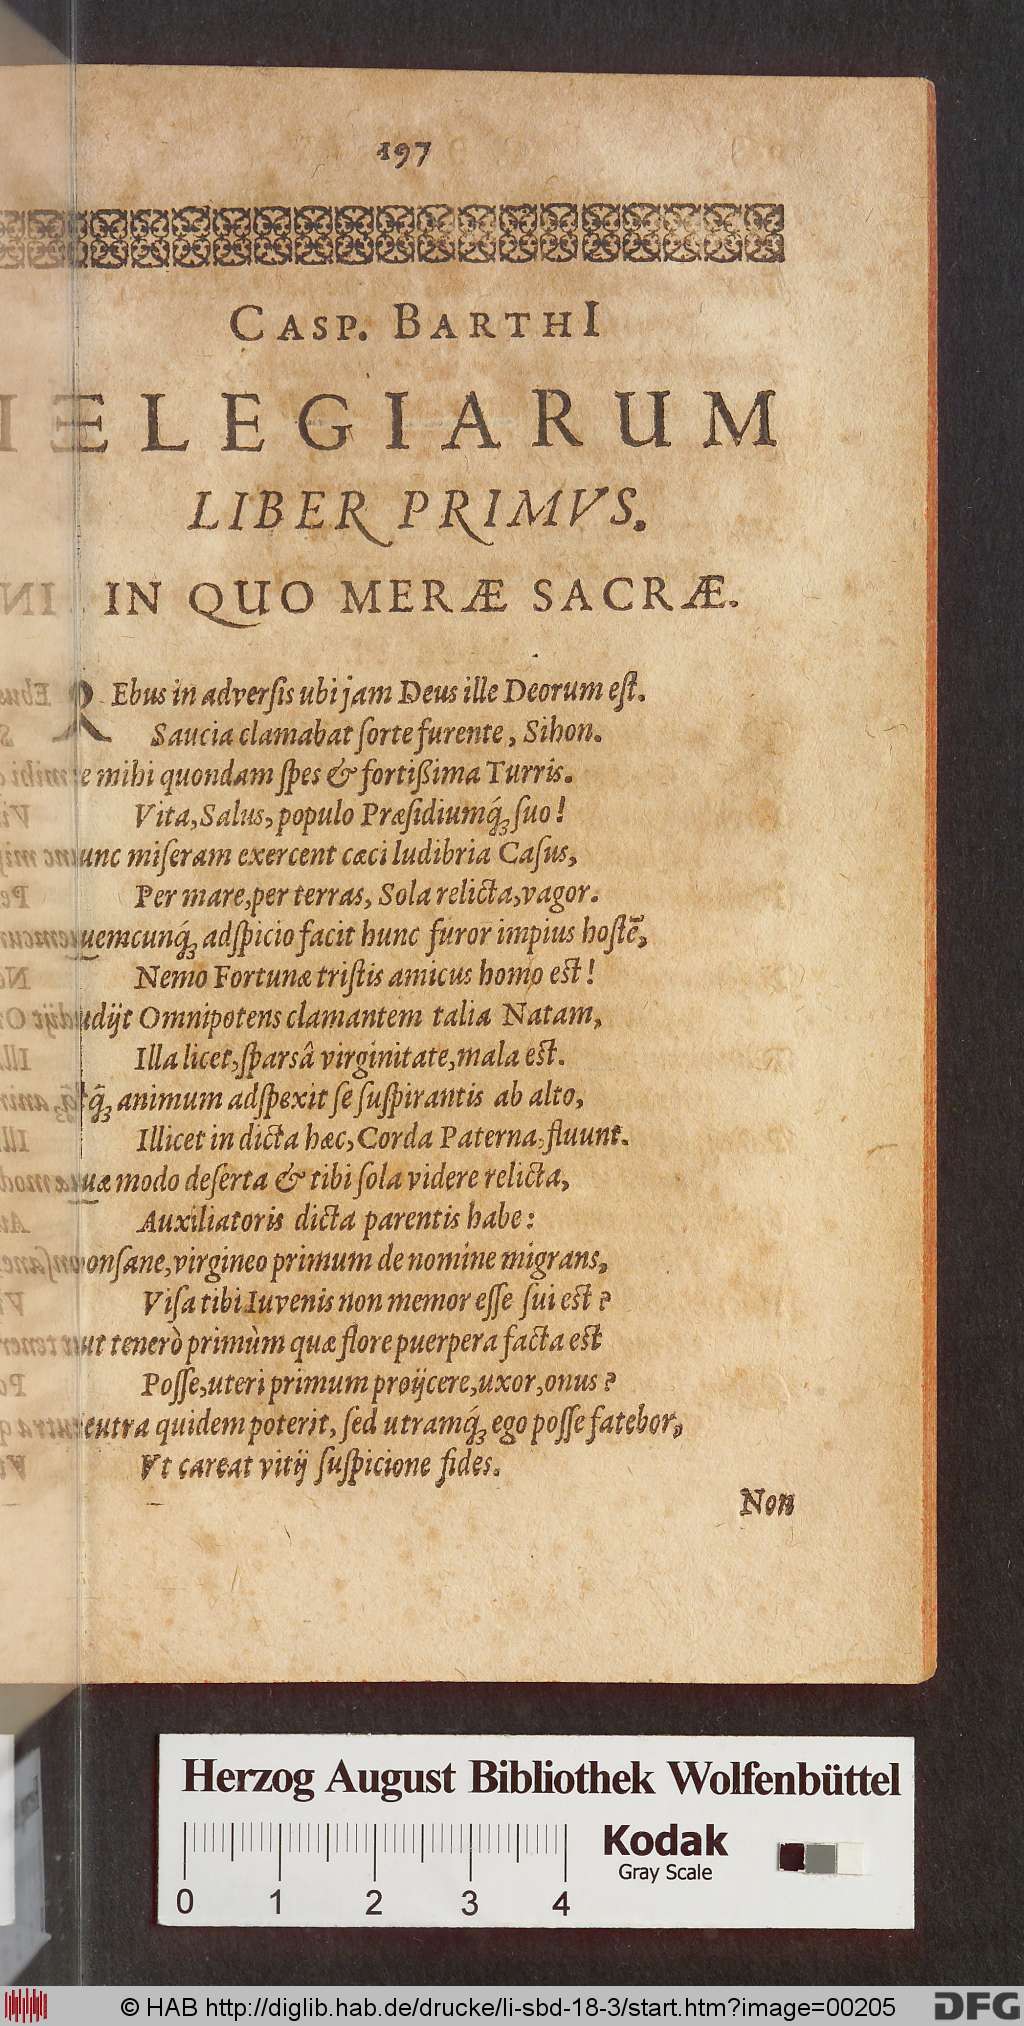 197
CASP. BARTHI
ELEGIARUM
LIBER PRIMVS.
IN QUO MERÆ SACRÆ.
REbus in adverſis ubi jam Deus ille Deorum eſt.
Saucia clamabat ſorte furente, Sihon.
mihi quondam ſpes & fortiſſima Turris.
Vita, Salus, populo Præſidiumq́; ſuo!
unc miſeram exercent cæci ludibria Caſus,
Per mare, per terras, Sola relicta, vagor.
uemcunq́; adſpicio facit hunc furor impius hoſtē,
Nemo Fortunæ triſtis amicus homo eſt!
udijt Omnipotens clamantem talia Natam,
Illa licet, ſparsâ virginitate, mala eſt.
tq́; animum adſpexit ſe ſuſpirantis ab alto,
Illicet in dicta hæc, Corda Paterna, fluunt.
uæ modo deſerta & tibi ſola videre relicta,
Auxiliatoris dicta parentis habe:
onſane, virgineo primum de nomine migrans,
Viſa tibi Iuvenis non memor eſſe ſui eſt?
ut tenerò primùm quæ flore puerpera facta eſt
Poſſe, uteri primum proijcere, uxor, onus?
eutra quidem poterit, ſed utramq́; ego poſſe fatebor,
Vt careat vitij ſuſpicione fides.
Non
Herzog August Bibliothek Wolfenbüttel
Kodak
Gray Scale
0 1 2 3 4
© HAB http://diglib.hab.de/drucke/li-sbd-18-3/start.htm?image=00205
DFG